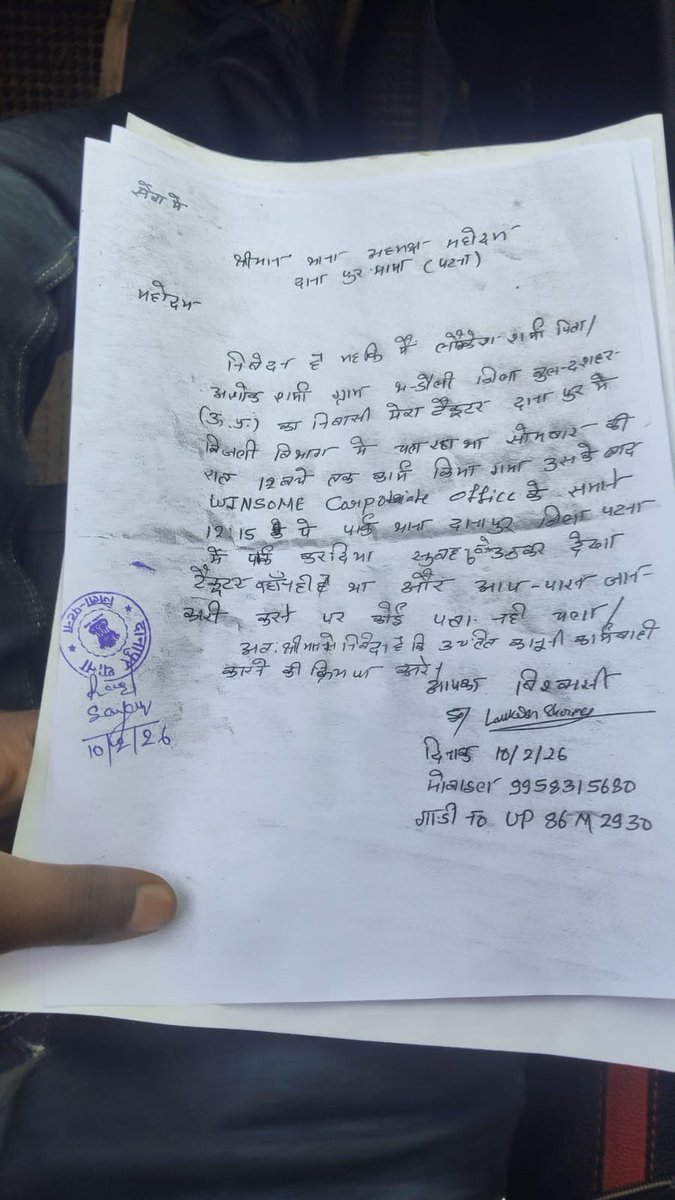 सेवा में
श्रीमान थाना अध्यक्ष महोदय
दाना पुर थाना (पटना)
महोदय
निवेदन है यह कि मैं लोकेश शर्मा पिता/
अशोक शर्मा ग्राम जिला बुलन्दशहर
(उ.प्र.) का निवासी मेरा ट्रैक्टर दाना पुर में
बिजली विभाग में चल रहा था सोमवार की
रात 12 बजे तक कार्य किया गया उसके बाद
WINSOME Corporate office के सामने
12:15 पे पार्क थाना दानापुर जिला पटना
में पार्क कर दिया सुबह उठकर देखा
ट्रैक्टर वहाँ नहीं था और आप-पास जान-
कारी करने पर कोई पता नही चला/
अतः श्रीमान से निवेदन है कि उचित कानूनी कार्यवाही
करने की कृपया करे।
आपका विश्वासी
दिनांक 10/2/26
मोबाइल 9958315680
गाडी no UP 86 M 2930
दानापुर थाना जिला-पटना
10/2/26